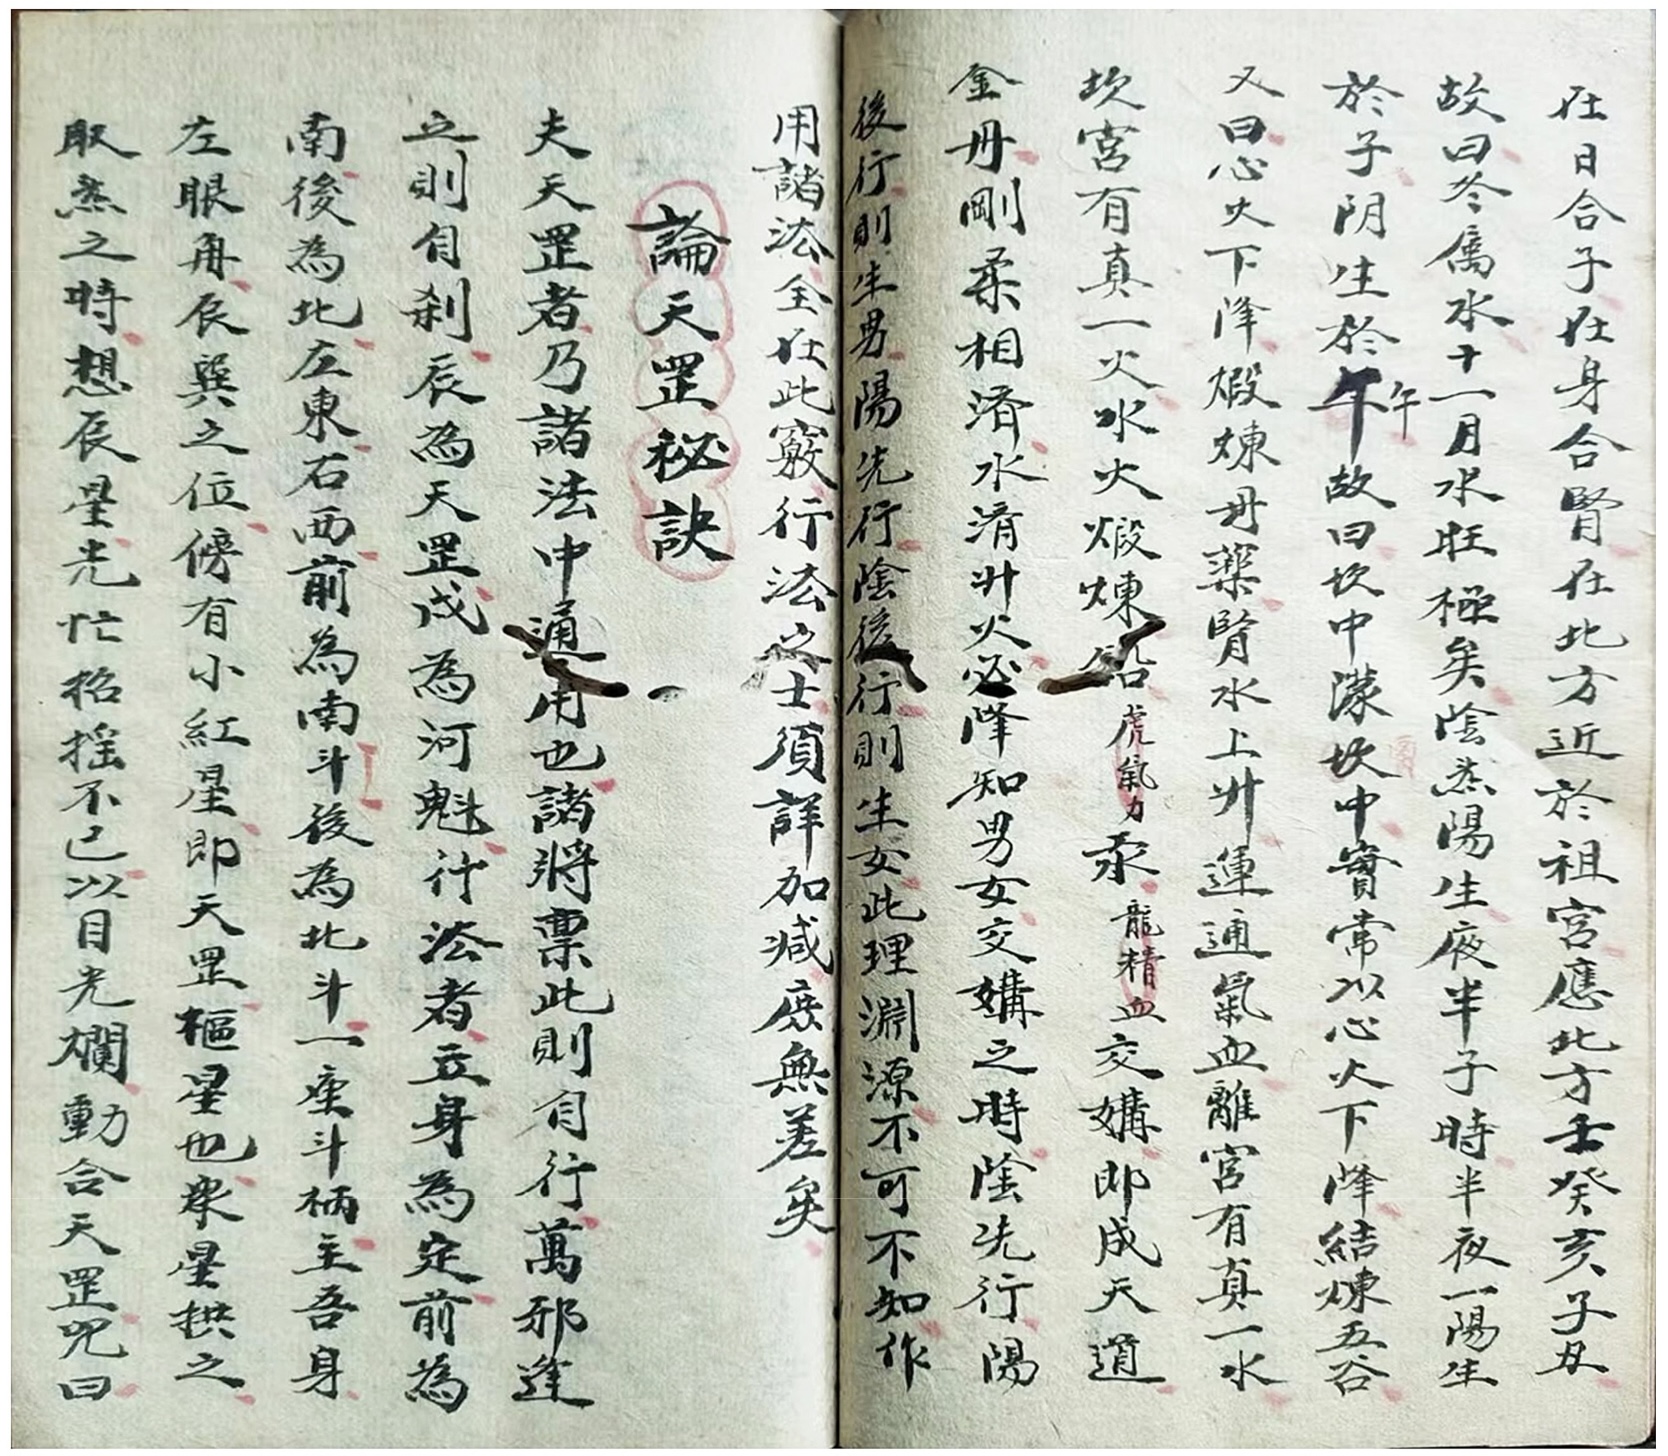 在日合子在身合腎在北方近於祖宮應北方壬癸亥子丑
故曰冬属水十一月水旺極矣陰炁陽生夜半子時半夜一陽生
於子阴生於午午故曰坎中濛坎中實常以心火下降結煉五谷
又曰心火下降煅煉丹藥腎水上升運通氣血離宮有真一水
坎宮有真一火水火煅煉鉛虎氣力汞龍精血交媾即成天道
金丹剛柔相济水清升火必降知男女交媾之時陰先行陽
後行則生男陽先行陰後行則生女此理淵源不可不知作
用諸法全在此竅行法之士須詳加减庶無差矣
論天罡秘訣
夫天罡者乃諸法中通用也諸將禀此則自行萬邪逢
之則自刹辰為天罡戌為河魁行法者立身為定前為
南後為北左東右西前為南斗後為北斗一座斗柄主吾身
左眼舟辰巽之位傍有小紅星即天罡樞星也衆星拱之
取炁之時想辰星光忙招摇不已以目光爛動合天罡咒曰